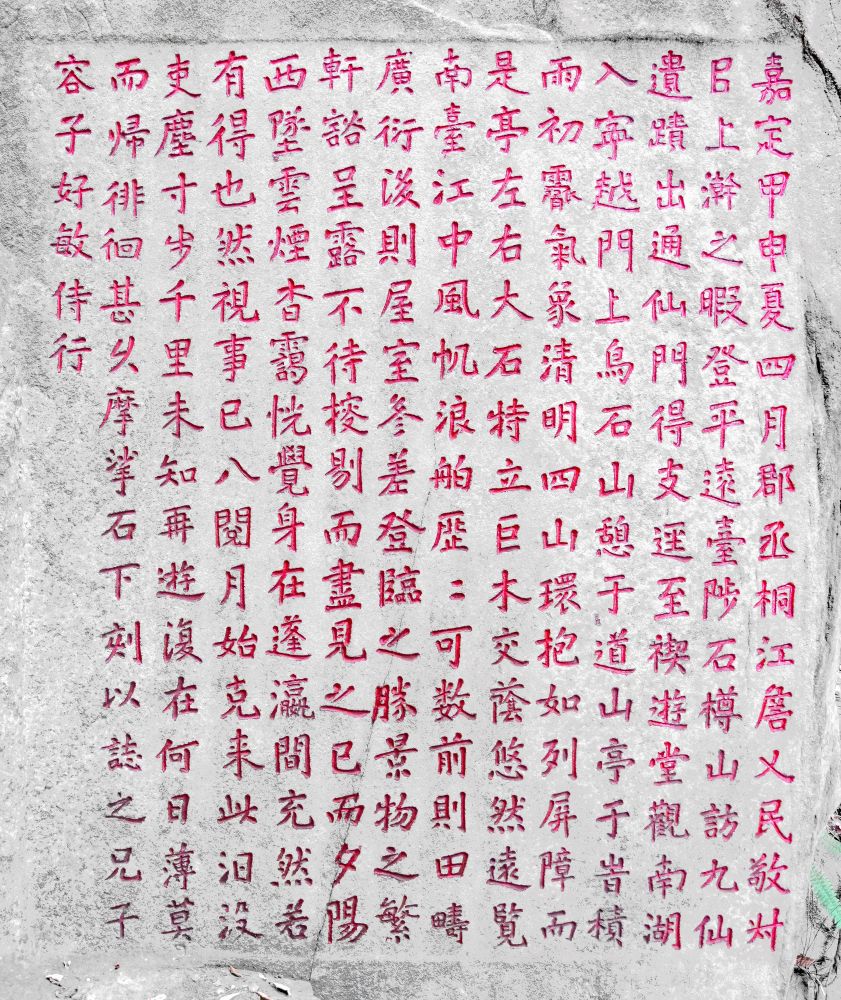 嘉定甲申夏四月郡丞桐江詹乂民敬叔
㠯上澣之暇登平遠臺陟石樽山訪九仙
遺蹟出通仙門得支逕至禊遊堂觀南湖
入寧越門上烏石山憩于道山亭于峕積
雨初霽氣象清明四山環抱如列屏障而
是亭左右大石特立巨木交蔭悠然遠覧
南臺江中風帆浪舶歷〻可数前則田疇
廣衍後則屋室參差登臨之勝景物之繁
軒豁呈露不待搜剔而盡見之已而夕陽
西墜雲煙杳靄恍覺身在蓬瀛間充然若
有得也然視事已八閱月始克来此汩没
吏塵寸步千里未知再遊復在何日薄莫
而帰徘徊甚久摩挲石下刻以誌之兄子
容子好敏侍行